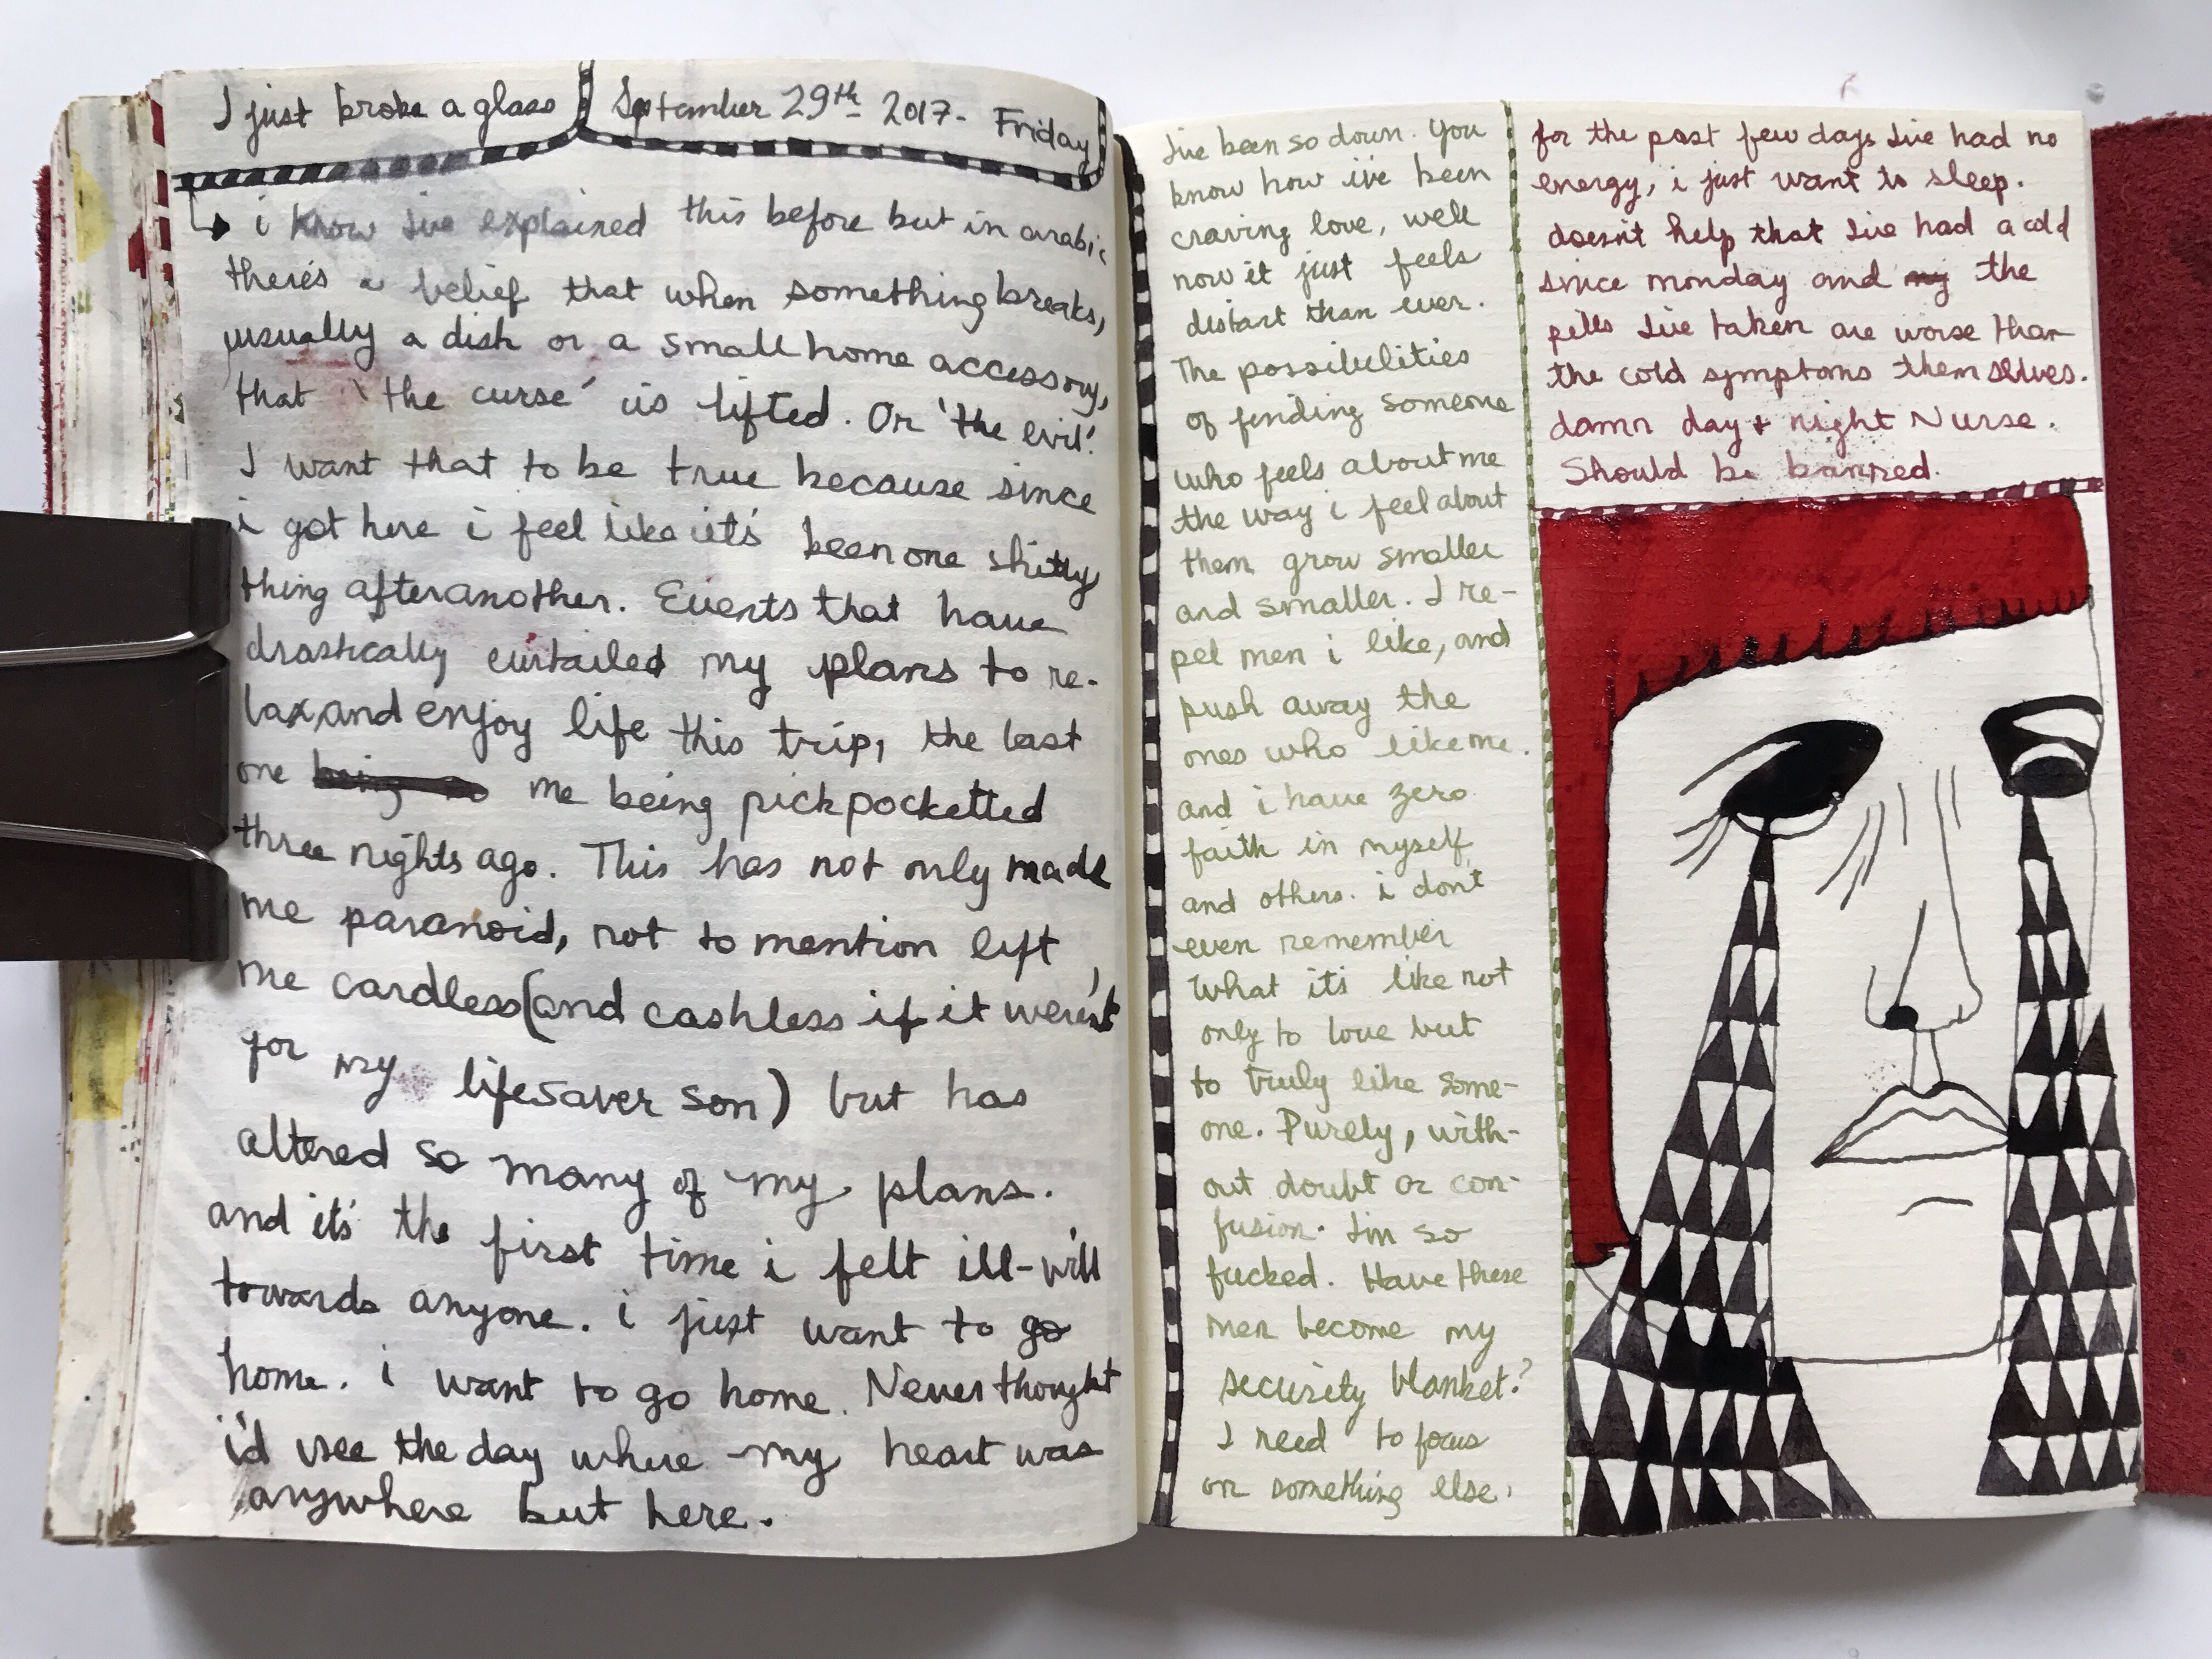 I just broke a glass
September 29th 2017. Friday
i know I've explained this before but in arabic
there's a belief that when something breaks,
usually a dish or a small home accessory,
that 'the curse' is lifted. Or 'the evil'.
I want that to be true because since
i got here i feel like it's been one shitty
thing after another. Events that have
drastically curtailed my plans to re-
lax, and enjoy life this trip, the last
one being me being pickpocketted
three nights ago. This has not only made
me paranoid, not to mention left
me cardless (and cashless if it weren't
for my lifesaver son) but has
altered so many of my plans.
and it's the first time i felt ill-will
towards anyone. i just want to go
home. i want to go home. Never thought
i'd see the day where my heart was
anywhere but here.
I've been so down. You
know how i've been
craving love, well
now it just feels
distant than ever.
The possibilities
of finding someone
who feels about me
the way i feel about
them grow smaller
and smaller. I re-
pel men i like, and
push away the
ones who like me.
and i have zero
faith in myself
and others. i don't
even remember
what it's like not
only to love but
to truly like some-
one. Purely, with-
out doubt or con-
fusion. I'm so
fucked. Have these
men become my
security blanket?
I need to focus
on something else.
for the past few days I've had no
energy, i just want to sleep.
doesn't help that I've had a cold
since monday and my the
pills I've taken are worse than
the cold symptoms themselves.
damn day & night Nurse.
Should be banned.